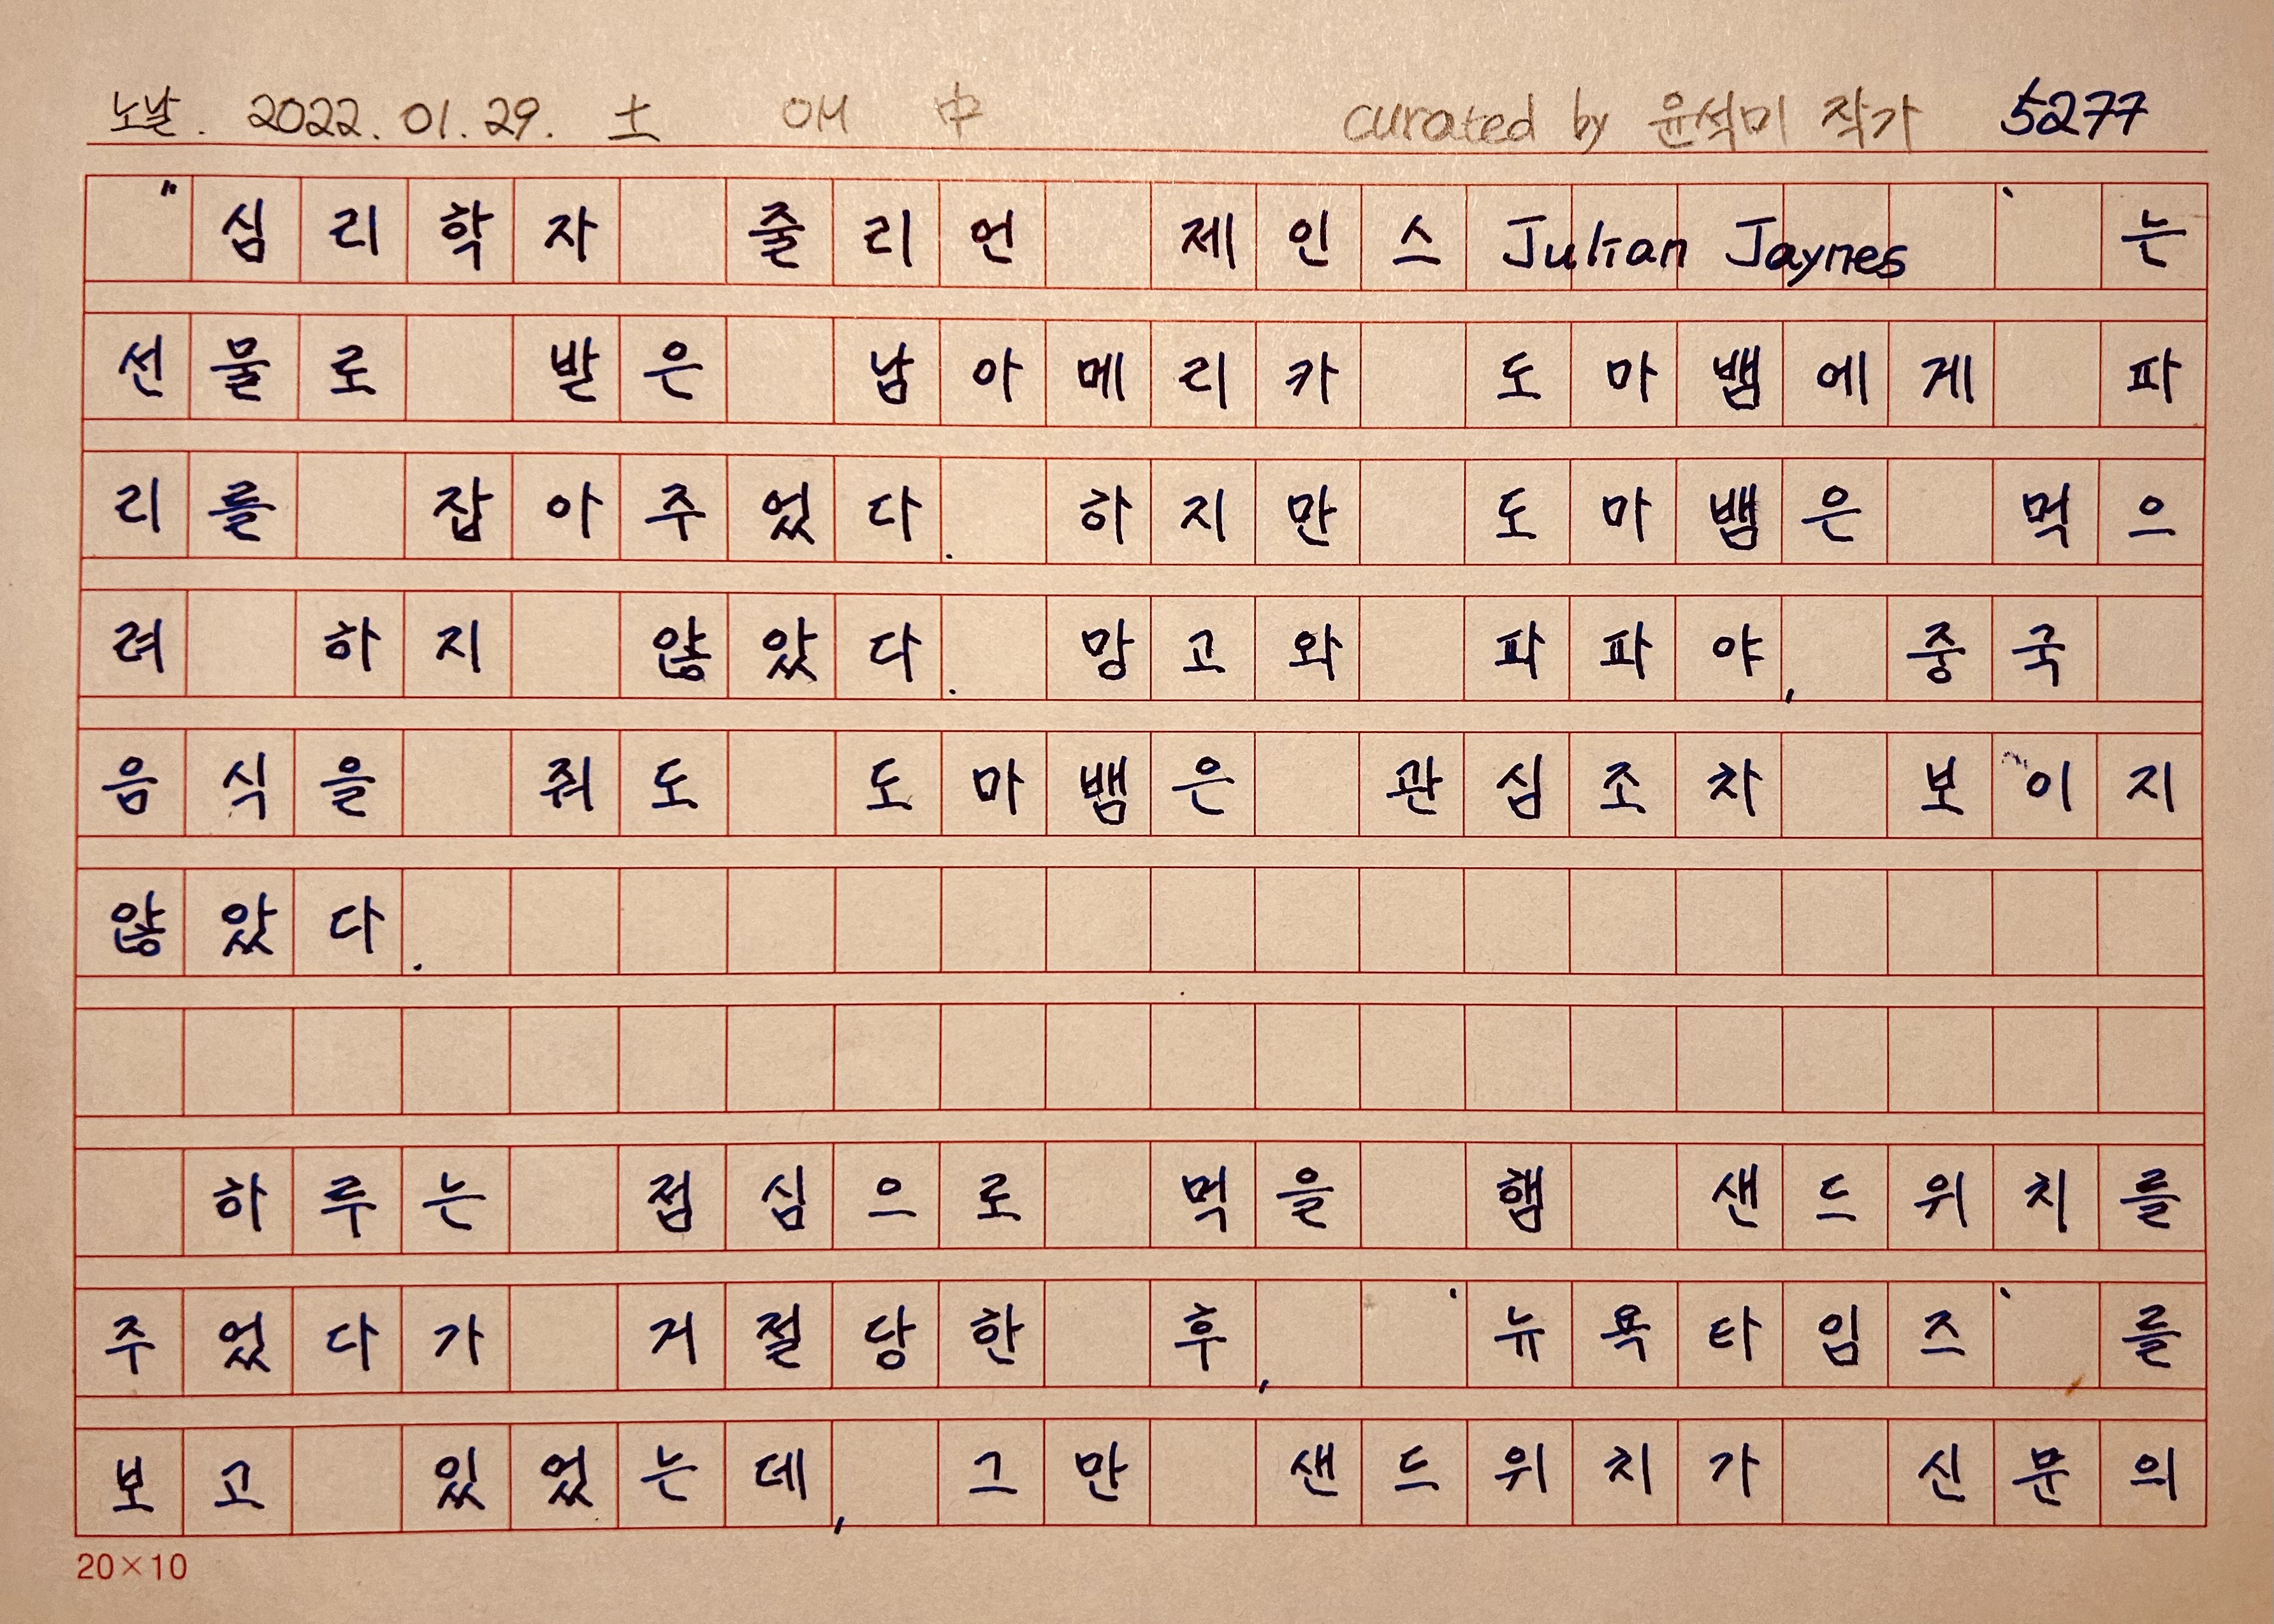 노날. 2022. 01. 29. 土 OH 中 curated by 윤석미 작가 5277
"심리학자 줄리언 제인스 Julian Jaynes ' 는
선물로 받은 남아메리카 도마뱀에게 파
리를 잡아주었다. 하지만 도마뱀은 먹으
려 하지 않았다. 망고와 파파야, 중국
음식을 줘도 도마뱀은 관심조차 보이지
않았다.
하루는 점심으로 먹을 햄 샌드위치를
주었다가 거절당한 후, '뉴욕타임즈'를
보고 있었는데, 그만 샌드위치가 신문의
20×10